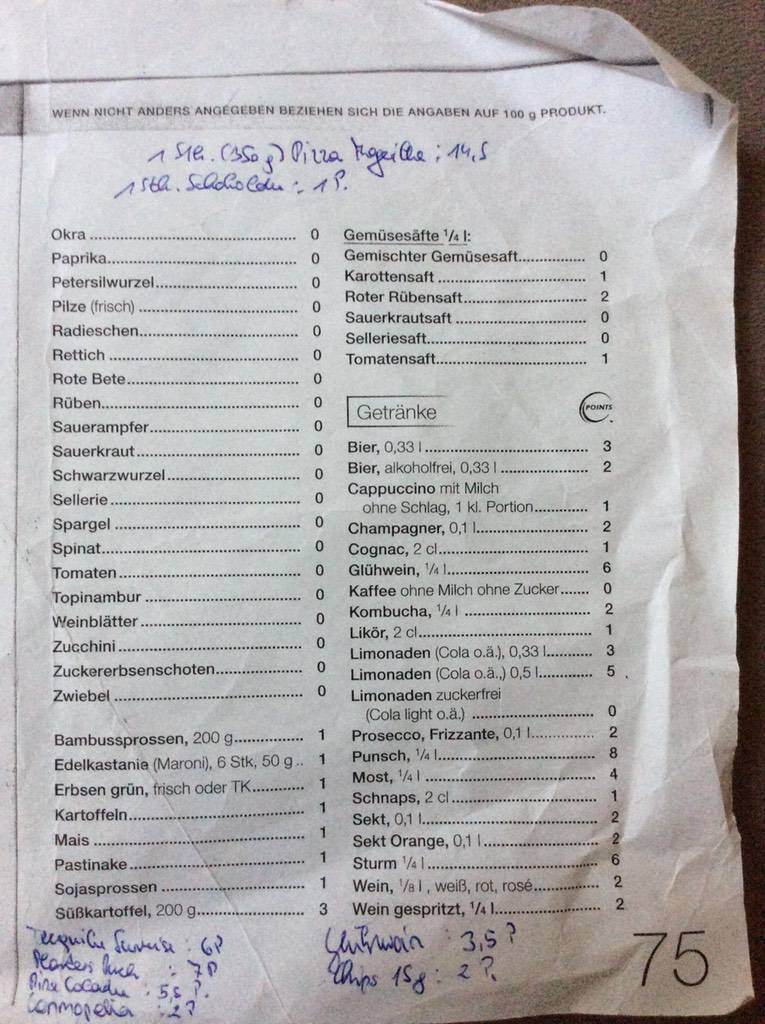 WENN NICHT ANDERS ANGEGEBEN BEZIEHEN SICH DIE ANGABEN AUF 100 g PRODUKT.
1 Stk. (350g) Pizza : 14,5
1 Stk. Schokolade : 1P.
Okra 0
Paprika 0
Petersilwurzel 0
Pilze (frisch) 0
Radieschen 0
Rettich 0
Rote Bete 0
Rüben 0
Sauerampfer 0
Sauerkraut 0
Schwarzwurzel 0
Sellerie 0
Spargel 0
Spinat 0
Tomaten 0
Topinambur 0
Weinblätter 0
Zucchini 0
Zuckererbsenschoten 0
Zwiebel 0
Bambussprossen, 200 g 1
Edelkastanie (Maroni), 6 Stk, 50 g 1
Erbsen grün, frisch oder TK 1
Kartoffeln 1
Mais 1
Pastinake 1
Sojasprossen 1
Süßkartoffel, 200 g 3
Sunrise : 6P
Planters Punch : 7P
Pina Colada : 5,5 P.
: 2P
Gemüsesäfte 1/4 l:
Gemischter Gemüsesaft 0
Karottensaft 1
Roter Rübensaft 2
Sauerkrautsaft 0
Selleriesaft 0
Tomatensaft 1
Getränke
POINTS
Bier, 0,33 l 3
Bier, alkoholfrei, 0,33 l 2
Cappuccino mit Milch
ohne Schlag, 1 kl. Portion 1
Champagner, 0,1 l 2
Cognac, 2 cl 1
Glühwein, 1/4 l 6
Kaffee ohne Milch ohne Zucker 0
Kombucha, 1/4 l 2
Likör, 2 cl 1
Limonaden (Cola o.ä.), 0,33 l 3
Limonaden (Cola o.ä.,) 0,5 l 5
Limonaden zuckerfrei
(Cola light o.ä.) 0
Prosecco, Frizzante, 0,1 l 2
Punsch, 1/4 l 8
Most, 1/4 l 4
Schnaps, 2 cl 1
Sekt, 0,1 l 2
Sekt Orange, 0,1 l 2
Sturm 1/4 l 6
Wein, 1/8 l , weiß, rot, rosé 2
Wein gespritzt, 1/4 l 2
Glühwein : 3,5 P
Chips 15g : 2 P.
75